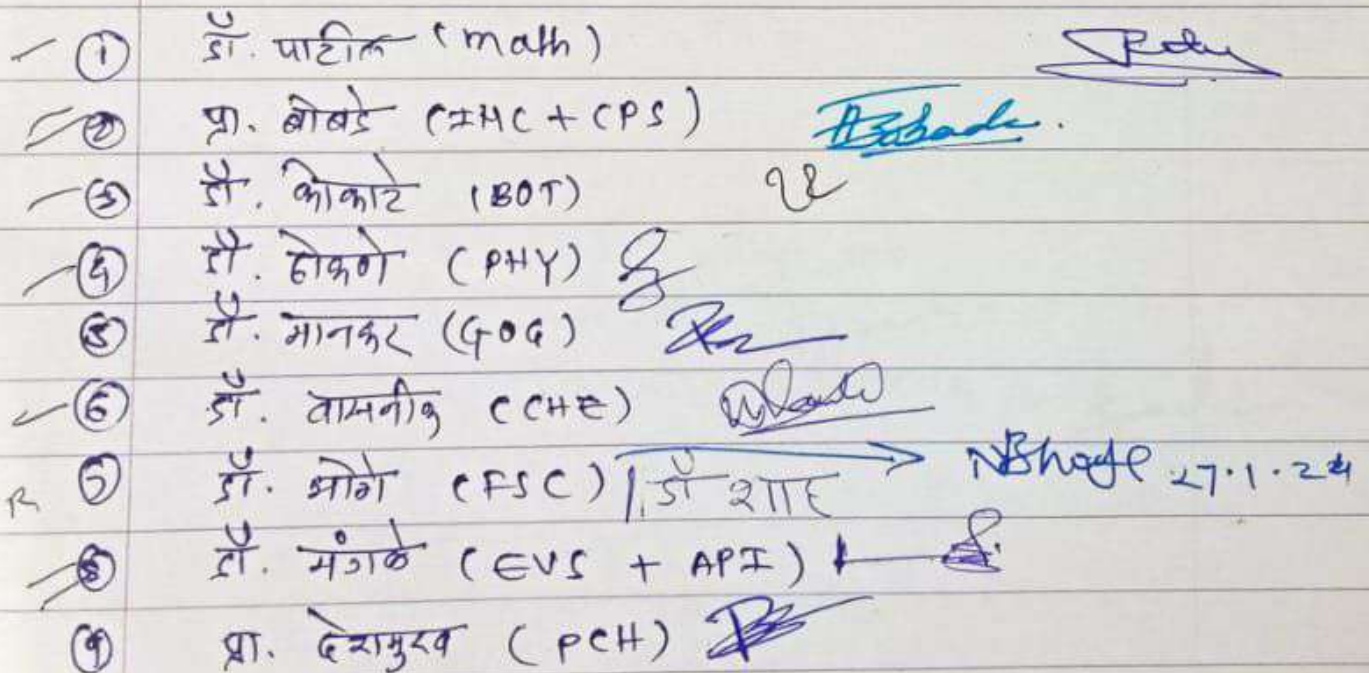 ① डॉ. पाटील (math)
② प्रा. बोबडे (IHC + CPS) ABobade.
③ डॉ. कोकाटे (BOT)
④ डॉ. ढोकणे (PHY)
⑤ डॉ. मानकर (GOG)
⑥ डॉ. वासनीक (CHE)
R ⑦ डॉ. भोगे (FSC) | डॉ शाह → NBhoge 27.1.24
⑧ डॉ. मंगळे (EVS + API)
⑨ प्रा. देशमुख (PCH)